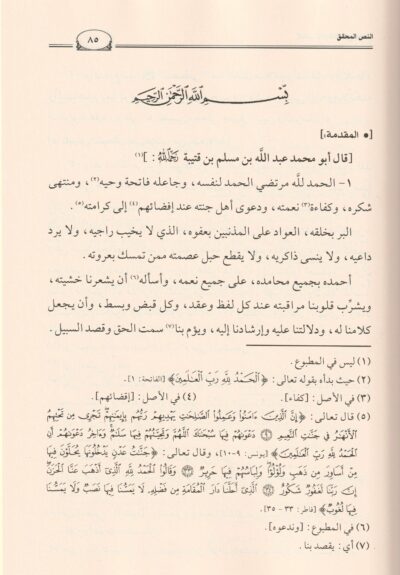 النص المحقق
٨٥
بِسْمِ اللَّهِ الرَّحْمَنِ الرَّحِيمِ
[• المقدمة:]
[قال أبو محمد عبد اللَّه بن مسلم بن قتيبة رَحِمَهُ اللَّهُ : ](١)
١- الحمد للَّه مرتضي الحمد لنفسه، وجاعله فاتحة وحيه(٢)، ومنتهى
شكره، وكفاءة(٣) نعمته، ودعوى أهل جنته عند إفضائهم(٤) إلى كرامته(٥).
البر بخلقه، العواد على المذنبين بعفوه، الذي لا يخيب راجيه، ولا يرد
داعيه، ولا ينسى ذاكريه، ولا يقطع حبل عصمته ممن تمسك بعروته.
أحمده بجميع محامده، على جميع نعمه، وأسأله(٦) أن يشعرنا خشيته،
ويشرِّب قلوبنا مراقبته عند كل لفظ وعقد، وكل قبض وبسط، وأن يجعل
كلامنا له، ودلالتنا عليه وإرشادنا إليه، ويؤم بنا(٧) سمت الحق وقصد السبيل.
(١) ليس في المطبوع.
(٢) حيث بدأه بقوله تعالى: ﴿الْحَمْدُ لِلَّهِ رَبِّ الْعَالَمِينَ﴾ [الفاتحة: ١].
(٣) في الأصل: [كفاء]. (٤) في الأصل: [إقضائهم].
(٥) قال تعالى: ﴿إِنَّ الَّذِينَ ءَامَنُوا وَعَمِلُوا الصَّالِحَاتِ يَهْدِيهِمْ رَبُّهُم بِإِيمَانِهِمْ تَجْرِي مِن تَحْتِهِمُ
الْأَنْهَارُ فِي جَنَّاتِ النَّعِيمِ ۝ دَعْوَاهُمْ فِيهَا سُبْحَانَكَ اللَّهُمَّ وَتَحِيَّتُهُمْ فِيهَا سَلَامٌ وَءَاخِرُ دَعْوَاهُمْ أَنِ
الْحَمْدُ لِلَّهِ رَبِّ الْعَالَمِينَ﴾ [يونس: ٩-١٠]، وقال تعالى: ﴿جَنَّاتُ عَدْنٍ يَدْخُلُونَهَا يُحَلَّوْنَ فِيهَا
مِنْ أَسَاوِرَ مِن ذَهَبٍ وَلُؤْلُؤًا وَلِبَاسُهُمْ فِيهَا حَرِيرٌ ۝ وَقَالُوا الْحَمْدُ لِلَّهِ الَّذِي أَذْهَبَ عَنَّا الْحَزَنَ
إِنَّ رَبَّنَا لَغَفُورٌ شَكُورٌ ۝ الَّذِي أَحَلَّنَا دَارَ الْمُقَامَةِ مِن فَضْلِهِ لَا يَمَسُّنَا فِيهَا نَصَبٌ وَلَا يَمَسُّنَا
فِيهَا لُغُوبٌ﴾ [فاطر: ٣٣ - ٣٥].
(٦) في المطبوع: [وندعوه].
(٧) أي: يقصد بنا.